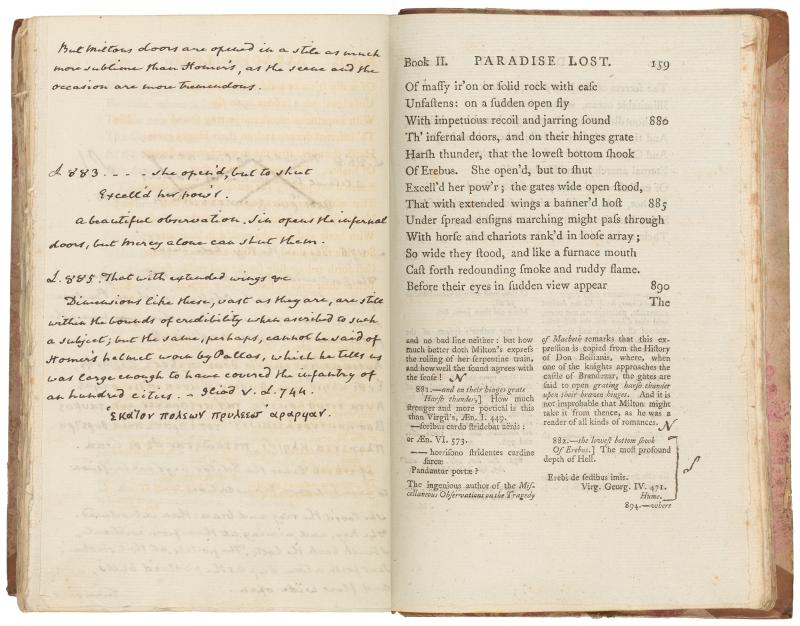 But Miltons doors are opened in a stile as much
more sublime than Homer's, as the scene and the
occasion are more tremendous.
L 883. - - - . she open'd, but to shut
Excell'd her pow'r.
A beautiful observation. Sin opens the infernal
doors, but Mercy alone can shut them.
L. 885. That with extended wings &c
Dimensions like these, vast as they are, are still
within the bounds of credibility when ascribed to such
a subject; but the same, perhaps, cannot be said of
Homer's helmet worn by Pallas, which he tells us
was large enough to have covered the infantry of
an hundred cities. - Iliad V. L. 744.
πολεων
Book II. PARADISE LOST. 159
Of maſſy ir'on or ſolid rock with eaſe
Unfaſtens: on a ſudden open fly
With impetuous recoil and jarring ſound 880
Th' infernal doors, and on their hinges grate
Harſh thunder, that the loweſt bottom ſhook
Of Erebus. She open'd, but to ſhut
Excell'd her pow'r; the gates wide open ſtood,
That with extended wings a banner'd hoſt 885
Under ſpread enſigns marching might paſs through
With horſe and chariots rank'd in looſe array;
So wide they ſtood, and like a furnace mouth
Caſt forth redounding ſmoke and ruddy flame.
Before their eyes in ſudden view appear 890
The
and no bad line neither: but how
much better doth Milton's expreſs
the rolling of her ſerpentine train,
and how well the ſound agrees with
the ſenſe! N
881.—and on their hinges grate
Harſh thunder,] How much
ſtronger and more poetical is this
than Virgil's, Æn. I. 449.
—foribus cardo ſtridebat aënis:
or Æn. VI. 573.
—— horriſono ſtridentes cardine
ſacræ
Panduntur portæ?
The ingenious author of the Miſ-
cellaneous Obſervations on the Tragedy
of Macbeth remarks that this ex-
preſſion is copied from the Hiſtory
of Don Bellianis, where, when
one of the knights approaches the
caſtle of Brandezar, the gates are
ſaid to open grating harſh thunder
upon their brazen hinges. And it is
not improbable that Milton might
take it from thence, as he was a
reader of all kinds of romances.
N
882.—the loweſt bottom ſhook
Of Erebus.] The moſt profound
depth of Hell.
Erebi de ſedibus imis.
Virg. Georg. IV. 471.
Hume.
894.—where